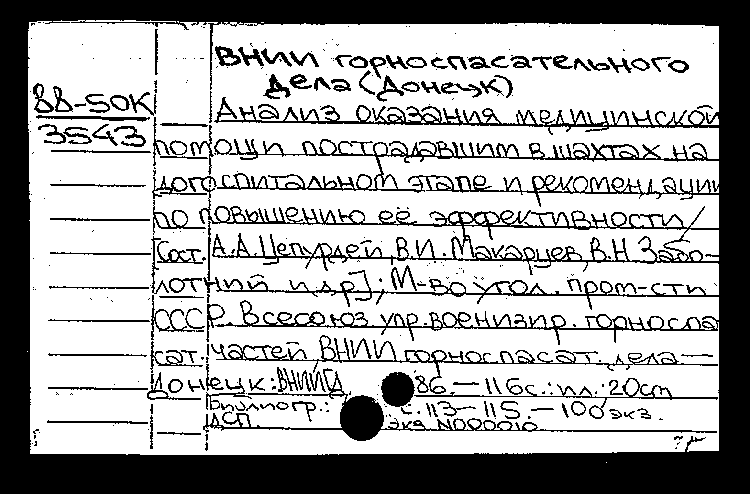 ВНИИ горноспасательного
дела (Донецк)
88-50К
3543
Анализ оказания медицинской
помощи пострадавшим в шахтах на
догоспитальном этапе и рекомендации
по повышению её эффективности/
[Сост. А.А. Цепурдей, В.И. Макарцев, В.Н. Забо-
лотний и др]; М-во угол. пром-сти
СССР. Всесоюз упр. военизир. горноспа
сат. частей, ВНИИ горноспасат. дела —
Донецк: ВНИИГД 86. — 116с.: ил.: 20cm
Библиогр.: с. 113-115. — 100 экз.
ДСП. экз N000010